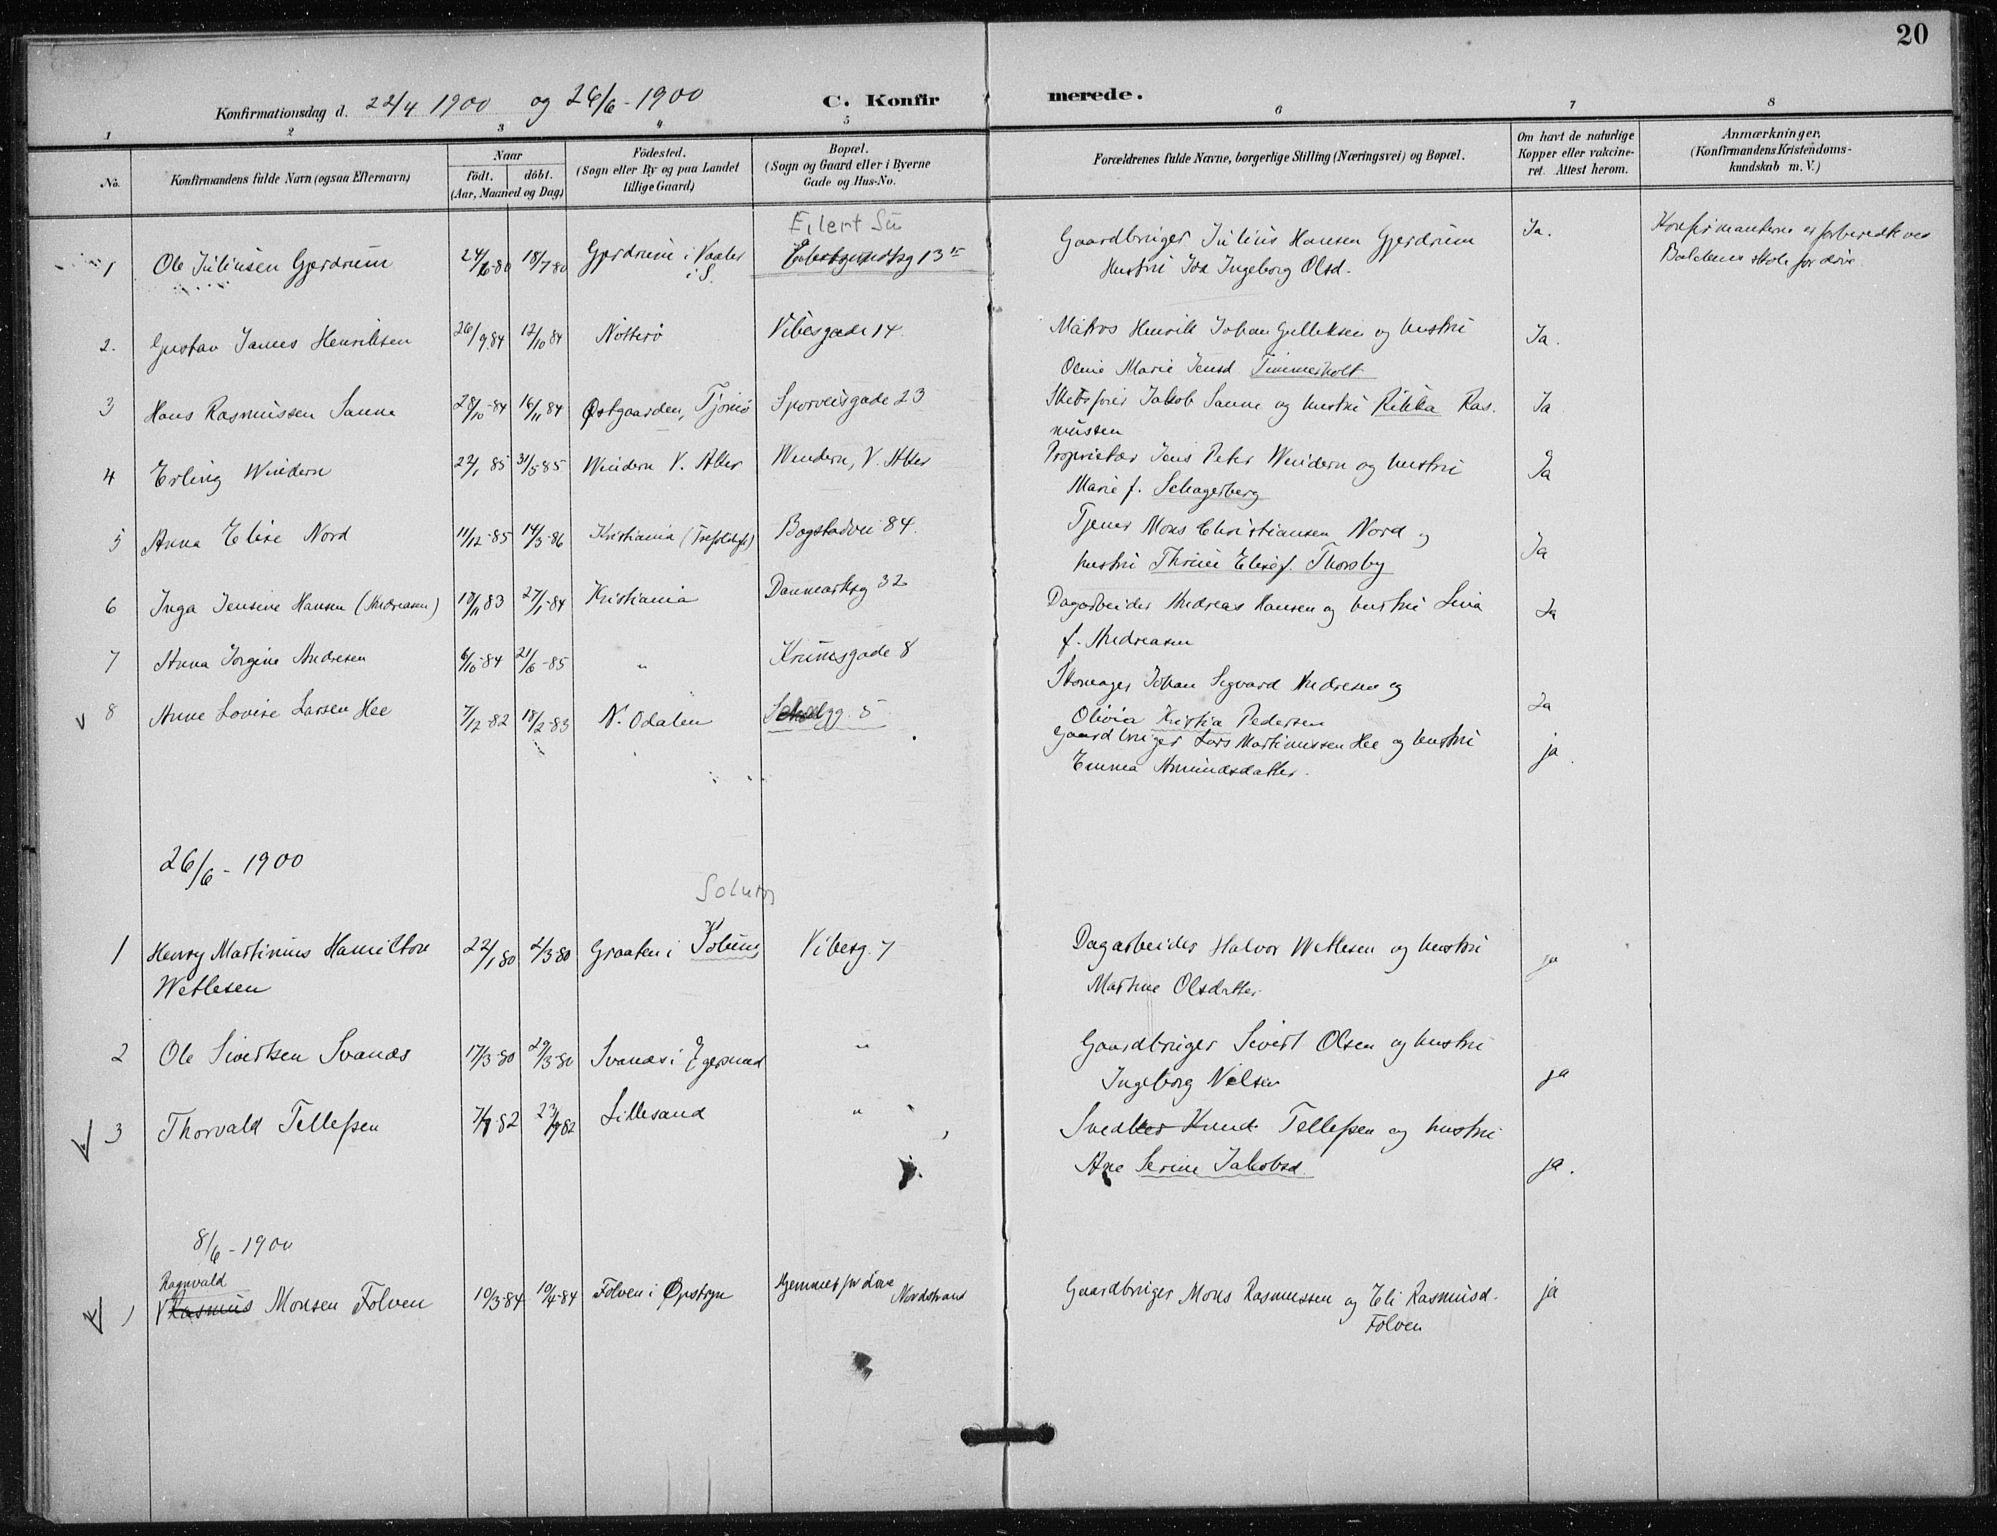 20
Konfirmationsdag d. 22/4 1900 og 26/6-1900 C. Konfirmerede.
1 2 3 4 5 6 7 8
No.
Konfirmandens fulde Navn (ogsaa Efternavn)
Naar
födt. döbt.
(Aar, Maaned og Dag)
Födested.
(Sogn eller By og paa Landet
tillige Gaard)
Bopæl.
(Sogn og Gaard eller i Byerne
Gade og Hus-No.
Forældrenes fulde Navne, borgerlige Stilling (Næringsvei) og Bopæl.
Om havt de naturlige
Kopper eller vakcine-
ret. Attest herom.
Anmærkninger,
(Konfirmandens Kristendoms-
kundskab m. V.)
Eilert Su
1 Ole Juliusen Gjerdrum 24/6 80 18/7 80 Gjerdrum i Vaaler i S. 13 Gaardbruger Julius Hansen Gjerdrum Ja. Konfirmanterne er forberedt ved
Hustru Ida Ingeborg Olsd. Baldens skole for døve
2. Gustav James Henriksen 26/9 84 12/10 84 Nötterö Vibesgade 14 Matros Henrik Johan Gulliksen og hustru Ja.
Oline Marie Jensd Timmerholt
3 Hans Rasmussen Sanne 28/10-84 16/11 84 Østgaarden, Tjömö Sporveisgade 23 Skibsförer Jakob Sanne og hustru Rikka Ras- Ja
mussen
4 Erling Windern 22/1 85 31/5 85 Windern V. Aker Windern, V. Aker Proprietær Jens Peter Windern og hustru Ja
Marie f. Schagerberg
5 Anna Elise Nord 11/12-85 14/3-86 Kristiania (Trefoldigh) Bogstadvei 84. Tjener Mons Christiansen Nord og
hustru Thrine Elise f. Thorsby Ja
6 Inga Jensine Hansen (Andreasen) 18/11 83 27/1-84 Kristiania Danmarksg 32 Dagarbeider Andreas Hansen og hustru Lina Ja
f. Andreasen
7 Anna Jorgine Andresen 6/10-84 21/6-85 " Krumsgade 8 Skomager Johan Sigvard Andresen og
Olivia Kristia Pedersen Ja
v 8 Anne Lovise Larsen Hee 7/12-82 18/2-83 N. Odalen 5 Gaardbruger Lars Martinussen Hee og hustru ja.
Emma Amundsdatter.
26/6-1900
Solum
1 Henry Martinius Hamilton 22/1 80 2/3 80 Graaten i Vibesg. 7 Dagarbeider Halvor Wetlesen og hustru ja
Wetlesen Martine Olsdatter
2 Ole Sivertsen Svanæs 17/3-80 29/3-80 Svanæs i Egersund " Gaardbruger Sivert Olsen og hustru
Ingeborg Nilsen ja
v 3 Thorvald Tellefsen 82 82 Lillesand " Knud Tellefsen og hustru
Ane Serine Jakobsd. ja.
8/6-1900
Ragnvald
v 1 Rasmus Monsen Folven 10/3-84 10/4-84 Folven i Opstryn Hjemmet for Døve Nordstrand Gaardbruger Mons Rasmussen og Eli Rasmusd. ja
Folven